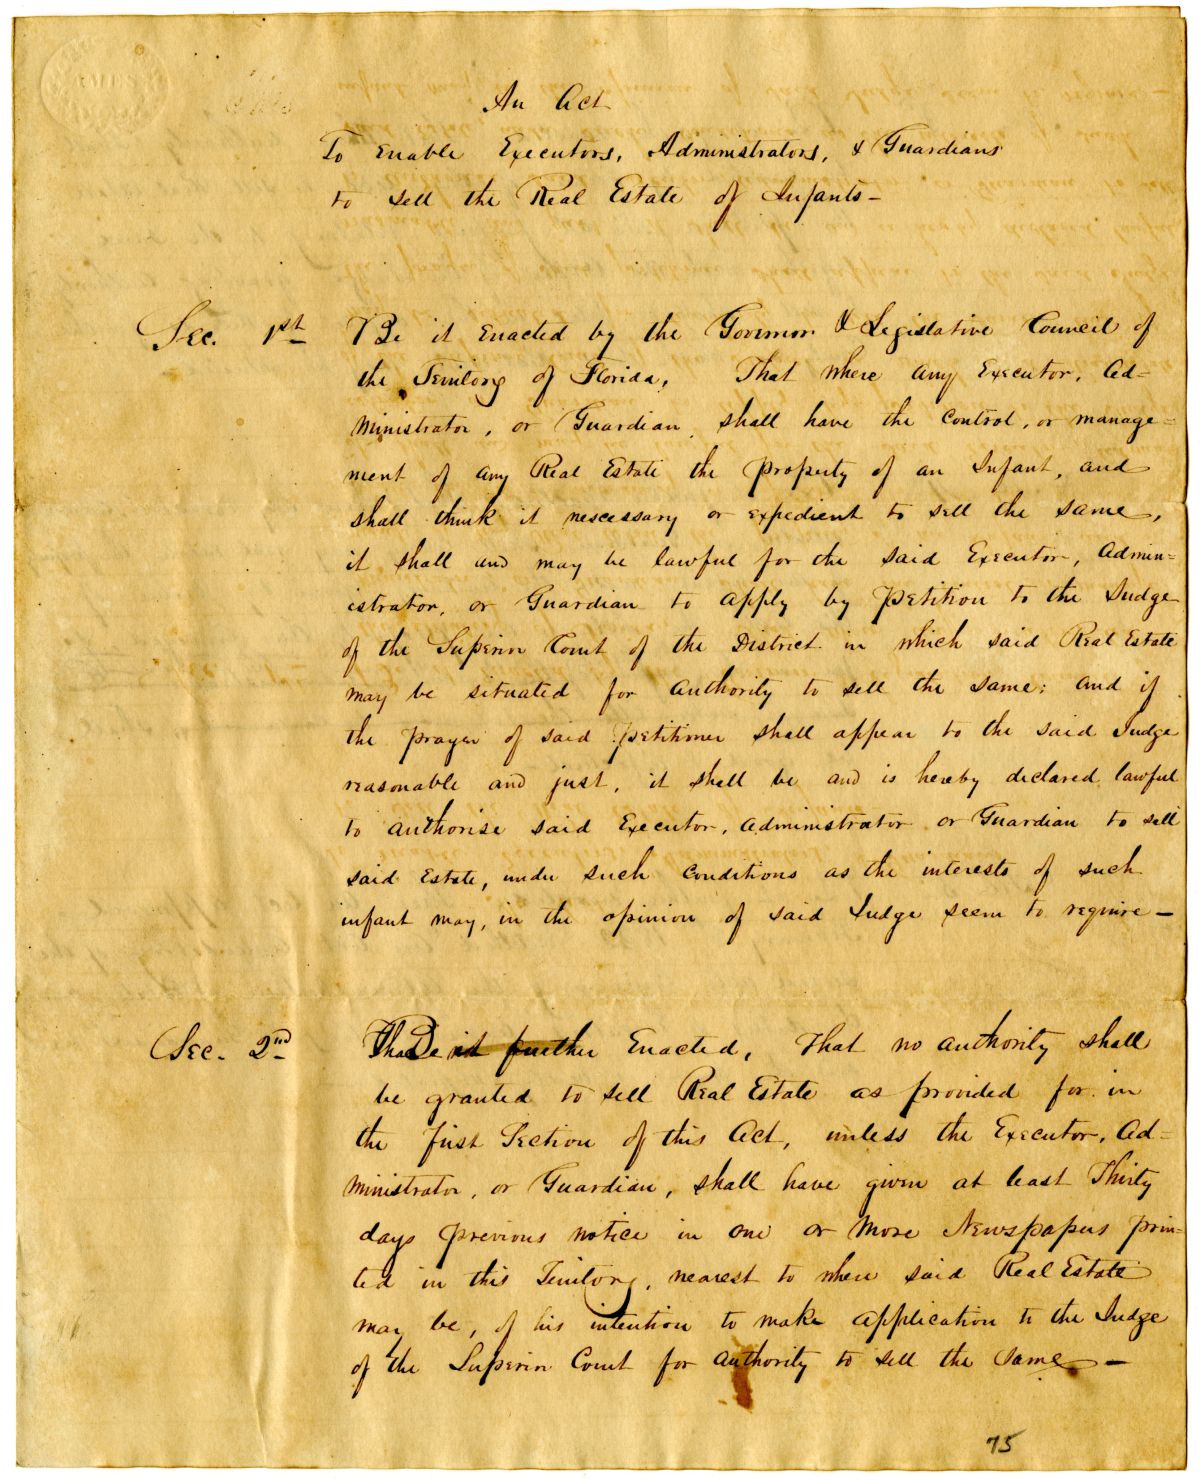 An Act
To enable Executors, Administrators, & Guardians
to sell the Real Estate of Infants —
Sec. 1st Be it enacted by the Governor & Legislative Council of
the Territory of Florida, That where any Executor, Ad=
ministrator, or Guardian, shall have the control, or manage=
ment of any Real Estate the property of an Infant, and
shall think it nescessary or expedient to sell the same,
it shall and may be lawful for the said Executor, Admin=
istrator, or Guardian to apply by petition to the Judge
of the Superior Court of the District in which said Real Estate
may be situated for authority to sell the same; and if
the prayer of said petitioner shall appear to the said Judge
reasonable and just, it shall be and is hereby declared lawful
to authorise said Executor, Administrator or Guardian to sell
said Estate, under such conditions as the interests of such
infant may, in the opinion of said Judge seem to require —
Sec. 2nd Be it further Enacted, That no authority shall
be granted to sell Real Estate as provided for in
the first Section of this Act, unless the Executor, Ad=
ministrator, or Guardian, shall have given at least Thirty
days previous notice in one or more Newspapers prin=
ted in this Territory, nearest to where said Real Estate
may be, of his intention to make application to the Judge
of the Superior Court for authority to sell the same —
75